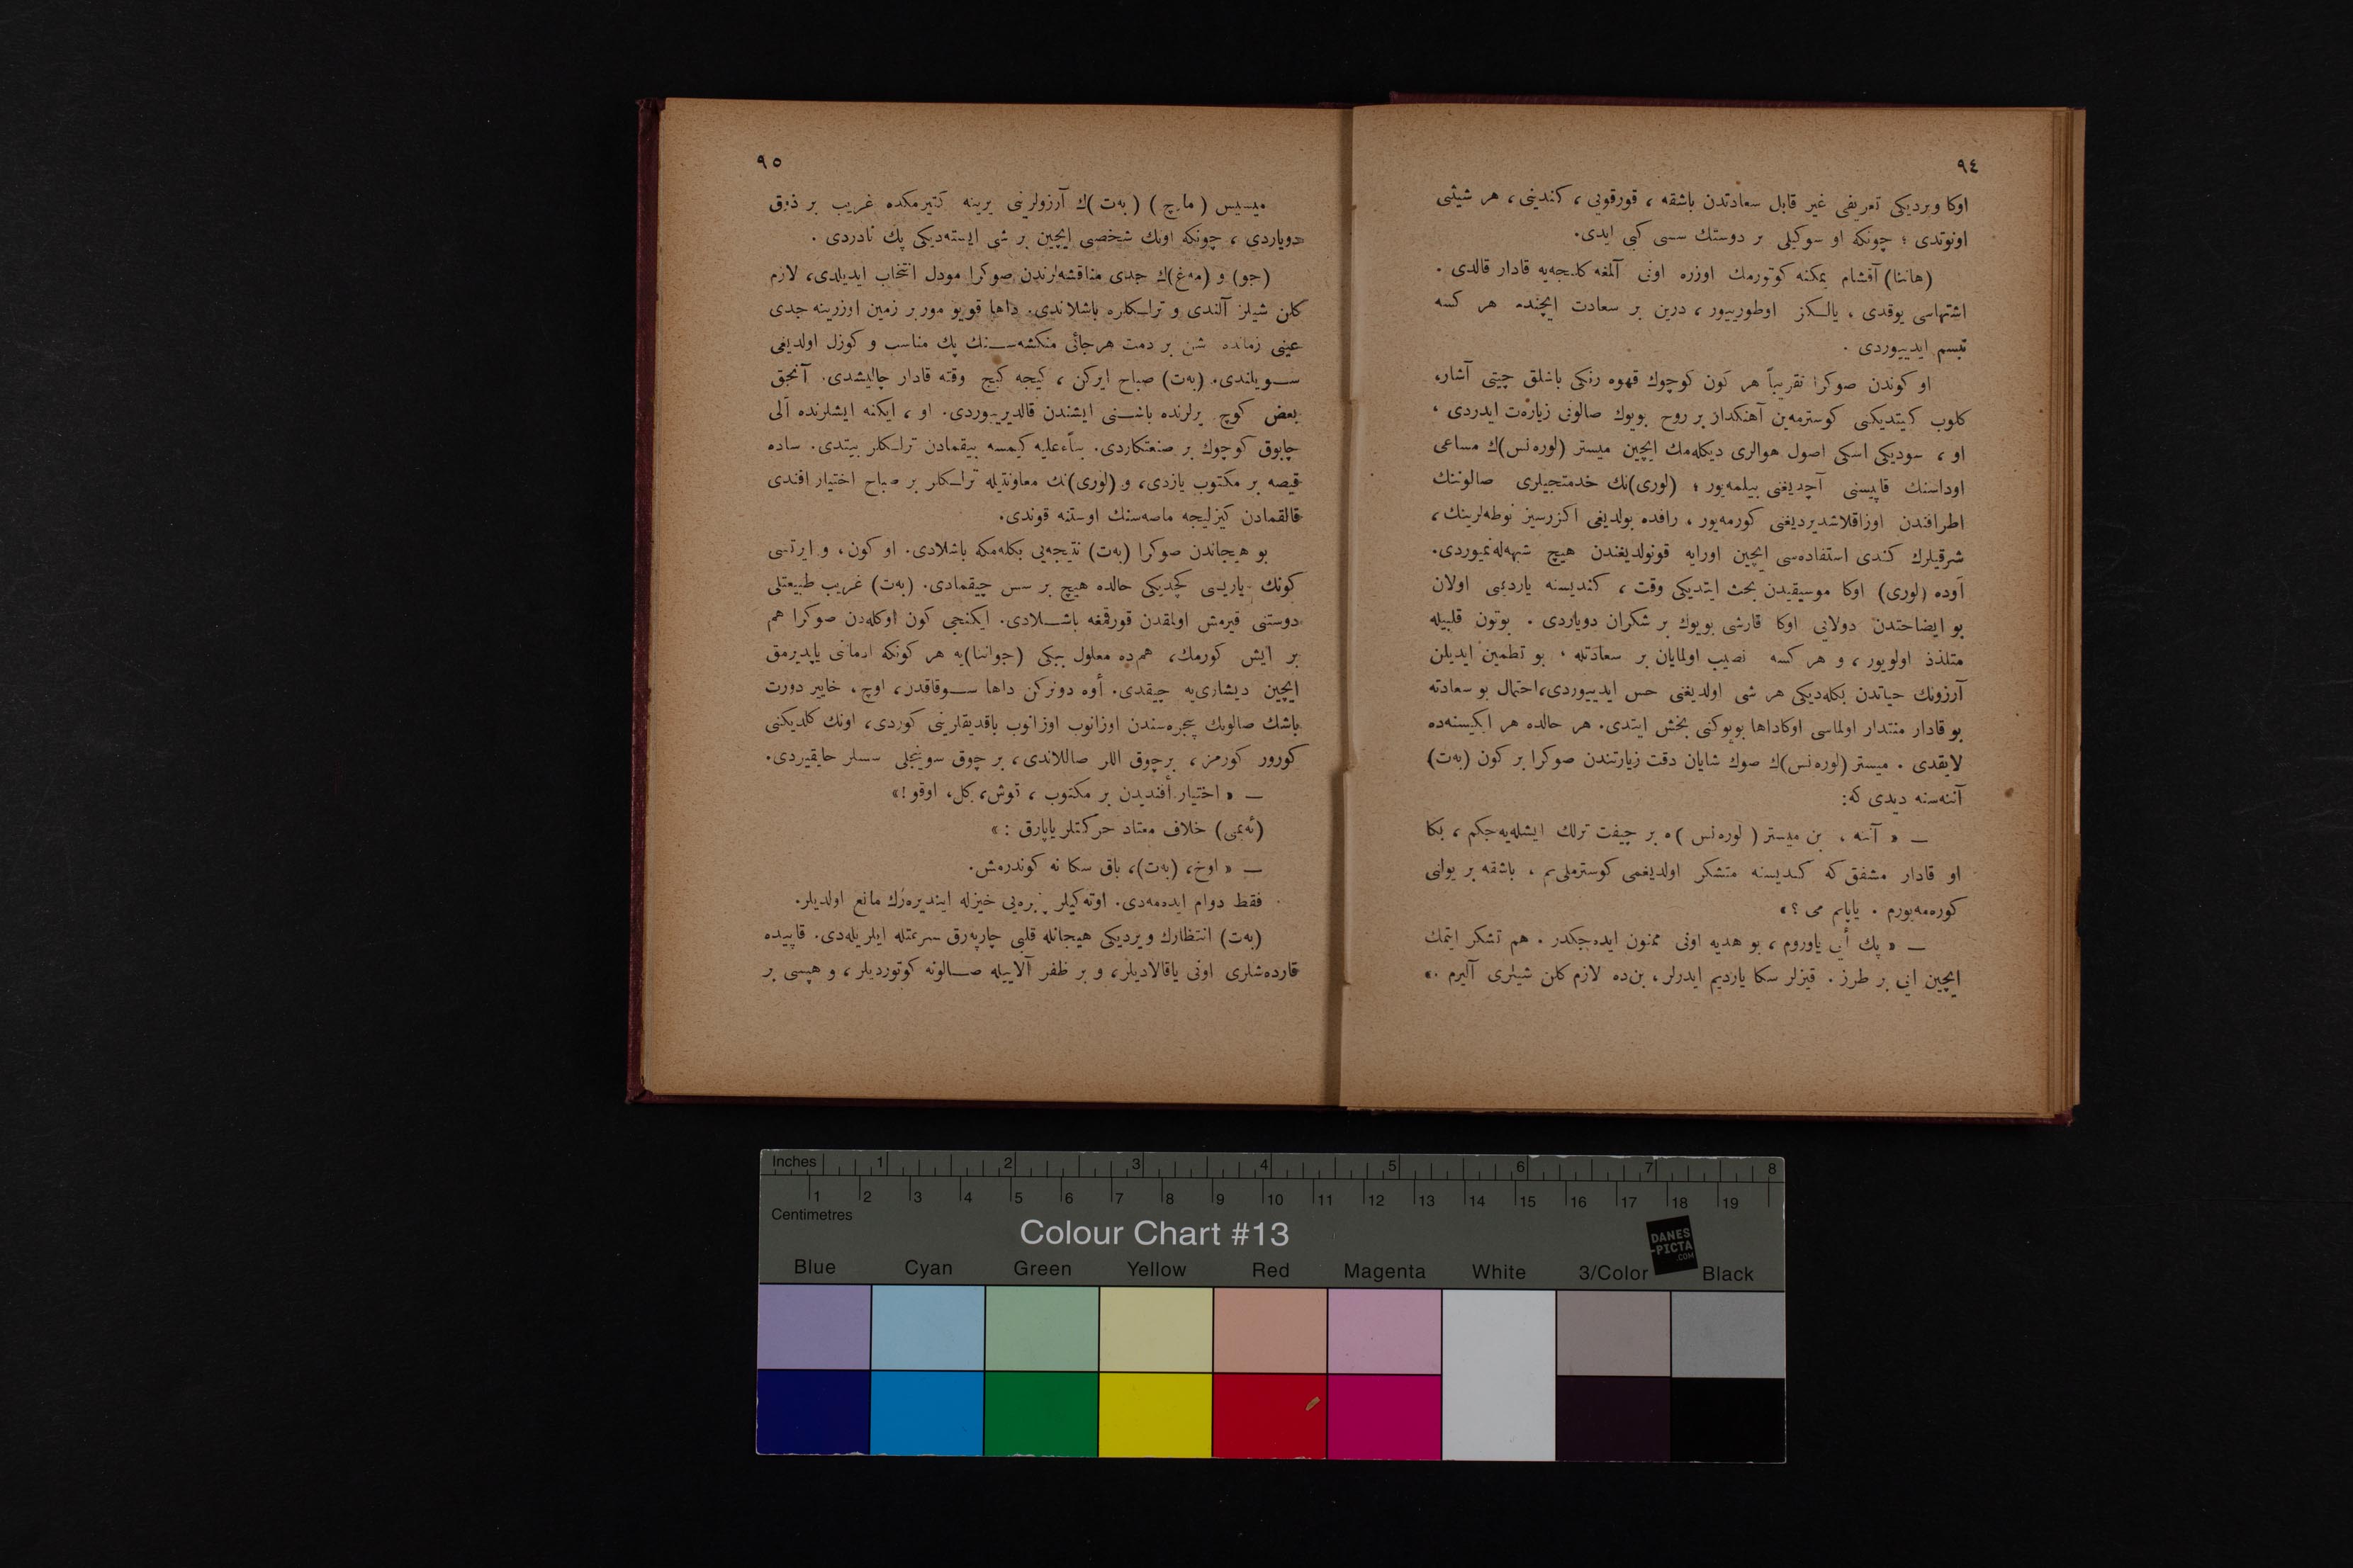 ٩٤
اوكا ويرديكى تعريفى غير قابل سعادتدن باشقه ، قورقويى ، كندينى ، هر شيئى
اونوتدى ؛ چونكه او سوكيلى بر دوستك سسى كبى ايدى.
(هاننا) آقشام يمكنه كوتورمك اوزره اونى آلمغه كلـجه‌يه قادار قالدى .
اشتهاسى يوقدى ، يالـكز اوطورييور ، درين بر سعادت ايچنده هر كسه
تبسم ايدييوردى .
او كوندن صوكرا تقريباً هر كون كوچوك قهوه رنكى باشلق چيتى آشار،
كلوب كيتديكنى كوسترمه‌ين آهنكدار بر روح بويوك صالونى زيارت ايدردى ،
او ، سوديكى اسكى اصول هوالرى ديكله‌مك ايچين ميستر (لوره‌نس)ك مساعى
اوداسنك قاپيسنى آچديغنى بيلمه‌يور ؛ (لورى)نك خدمتجيلرى صالوننك
اطرافندن اوزاقلاشديرديغنى كورمه‌يور ، رافده بولديغى اكزرسيز نوطه‌لرينك،
شرقيلرك كندى استفاده‌سى ايچين اورايه قونولديغندن هيچ شبهه‌له‌نميوردى.
اَوده (لورى) اوكا موسيقيدن بحث ايتديكى وقت ، كنديسنه ياردمى اولان
بو ايضاحتدن دولايى اوكا قارشى بويوك بر شكران دوياردى . بوتون قلبيله
متلذذ اولويور ، و هر كسه نصيب اولمايان بر سعادتله ، بو تطمين ايديلن
آرزونك حياتدن بكله‌ديكى هر شى اولديغنى حس ايدييوردى،احتمال بو سعادته
بو قادار منتدار اولماسى اوكاداها بويوكنى بخش ايتدى. هر حالده هر ايكيسنه‌ده
لايقدى . ميستر (لوره‌نس)ك صوك شايان دقت زيارتندن صوكرا بر كون (به‌ت)
آننه‌سنه ديدى كه:
— « آننه ، بن ميستر ( لوره‌نس )ه بر چيفت ترلك ايشله‌يه‌جكم ، بكا
او قادار مشفق كه كنديسنه متشكر اولديغمى كوسترملى‌يم ، باشقه بر يولنى
كوره‌مه‌يورم . ياپايم مى ؟ »
— « پك اُيى ياوروم ، بو هديه اونى ممنون ايده‌جكدر . هم تشكر ايتمك
ايچين ايى بر طرز . قيزلر سكا يارديم ايدرلر ، بن‌ده لازم كلن شيلرى آليرم .»
٩٥
ميسيس ( مارچ ) ( به‌ت )ك آرزولرينى يرينه كتيرمكده غريب بر ذوق
دوياردى ، چونكه اونك شخصى ايچين بر شى ايسته‌ديكى پك نادردى .
(جو) و (مه‌غ)ك جدى مناقشه‌لرندن صوكرا مودل انتخاب ايديلدى، لازم
كلن شيلر آلندى و ترلـكلره باشلاندى. داها قويو مور بر زمين اوزرينه جدى
عينى زمانده شن بر دمت هرجائى منكشه‌ســنك پك مناسب و كوزل اولديغى
ســويلندى. (به‌ت) صباح ايركن ، كيجه كيج وقته قادار چاليشدى. آنجق
بعض كوچ يرلرنده باشــنى ايشندن قالديرييوردى. او ، ايكنه ايشلرنده اَلى
چابوق كوچوك بر صنعتكاردى. بناًءعليه كيمسه بيقمادن ترلـكلر بيتدى. ساده
قيصه بر مكتوب يازدى، و (لورى)نك معاونتيله ترلـكلر بر صباح اختيار افندى
قالقمادن كيزليجه ماصه‌سنك اوستنه قوندى.
بو هيجاندن صوكرا (به‌ت) نتيجه‌يى بكله‌مكه باشلادى. او كون، و ايرتسى
كونك ياريسى كچديكى حالده هيچ بر سس چيقمادى. (به‌ت) غريب طبيعتلى
دوستنى قيرمش اولمقدن قورقمغه باشــلادى. ايكنجى كون اوكله‌دن صوكرا هم
بر ايش كورمك، هم‌ده معلول ببكى (جواننا)يه هر كونكه ادمانى ياپديرمق
ايچين ديشارى‌يه چيقدى. اَوه دونركن داها ســوقاقدن، اوچ، خاير دورت
باشك صالونك پنجره‌سندن اوزانوب اوزانوب باقديقلرينى كوردى، اونك كلديكنى
كورور كورمز ، برچوق اللر صاللاندى، بر چوق سوينجلى سسلر حايقيردى.
— « اختيار اَفنديدن بر مكتوب ، قوش، كل، اوقو !»
(ئه‌يمى) خلاف معتاد حركتلر ياپارق : »
— « اوخ، (به‌ت)، باق سكا نه كوندرمش.
فقط دوام ايده‌مه‌دى. اوته‌كيلر پنجره‌يى خيزله اينديره‌رك مانع اولديلر.
(به‌ت) انتظارك ويرديكى هيجانله قلبى چارپه‌رق سرعتله ايلريله‌دى. قاپيده
قارده‌شلرى اونى ياقالاديلر، و بر ظفر آلاييله صــالونه كوتورديلر ، و هپسى بر
Inches 1 2 3 4 5 6 7 8
1 2 3 4 5 6 7 8 9 10 11 12 13 14 15 16 17 18 19
Centimetres
Colour Chart #13
DANES
-PICTA
.COM
Blue Cyan Green Yellow Red Magenta White 3/Color Black